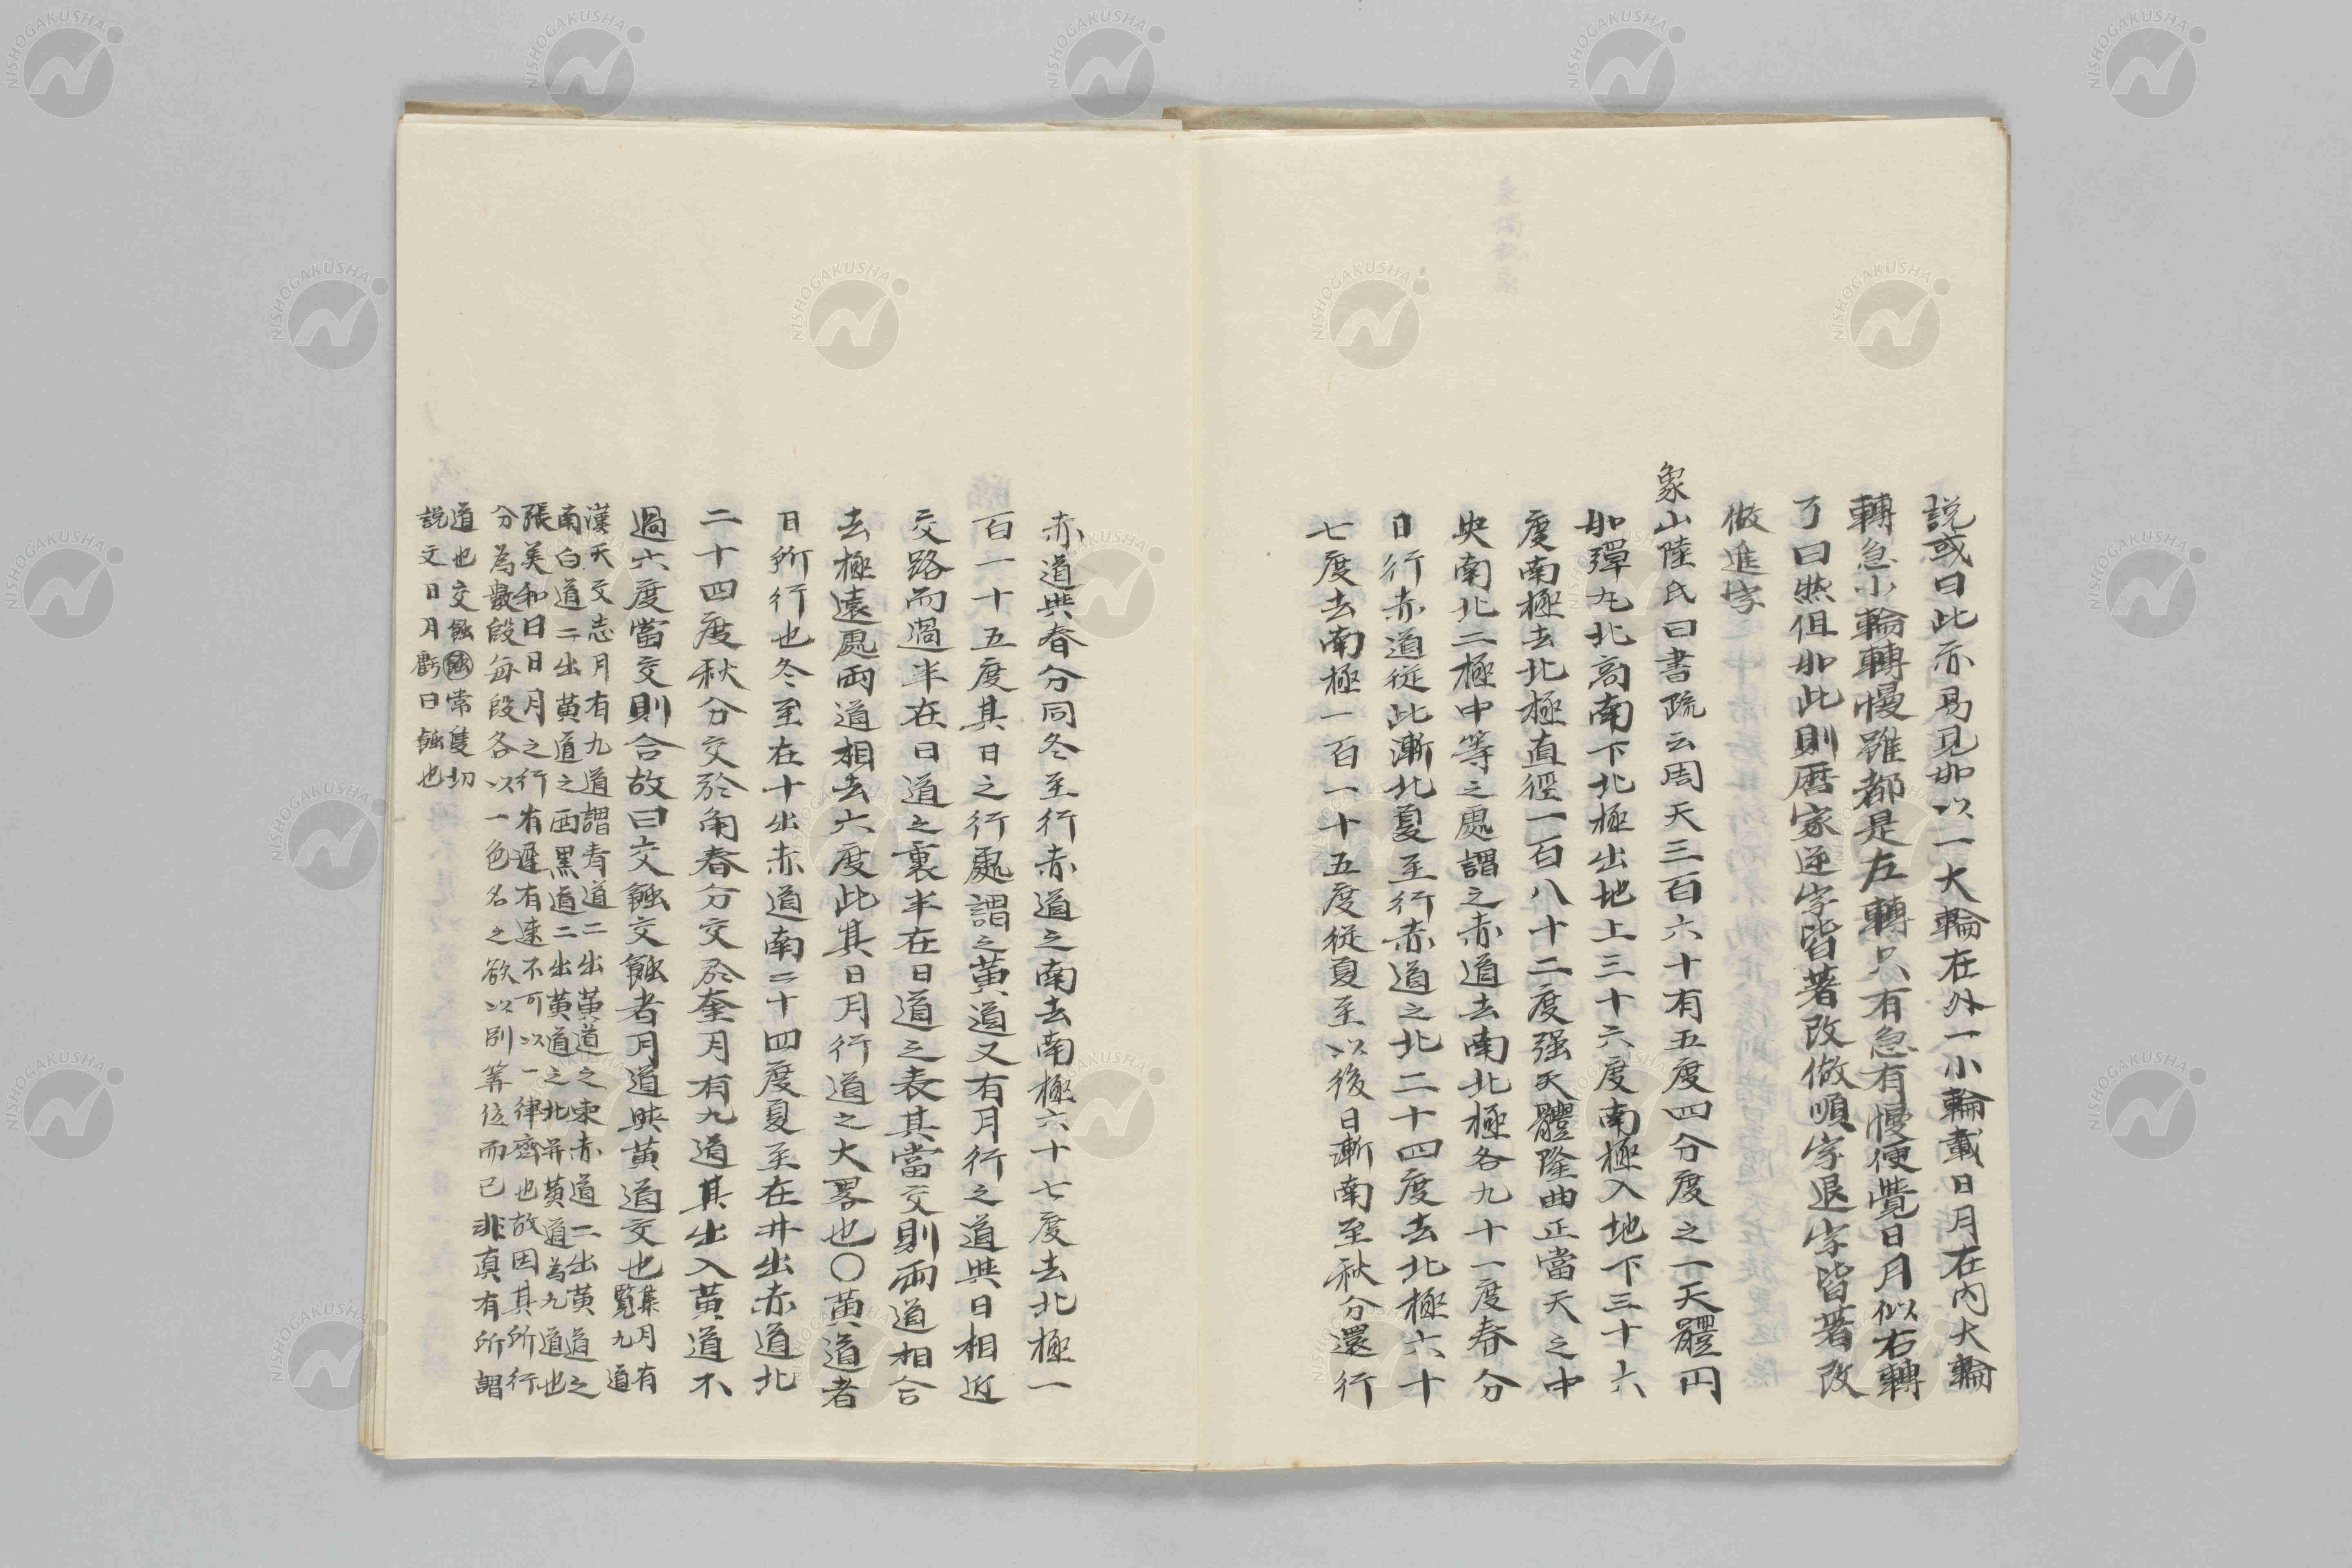 説或曰此亦易見如以一大輪在外一小輪載日月在内大輪
轉急小輪轉慢雖都是左轉只有急有慢便覺日月似右轉
了曰然但如此則暦家逆字皆著改做順字退字皆著改
做進字
象山陸氏曰書疏云周天三百六十有五度四分度之一天體円
如彈丸北高南下北極出地上三十六度南極入地下三十六
度南極去北極直徑一百八十二度强天體隆曲正當天之中
央南北二極中等之處謂之赤道去南北極各九十一度春分
日行赤道從此漸北夏至行赤道之北二十四度去北極六十
七度去南極一百一十五度從夏至以後日漸南至秋分還行
赤道與春分同冬至行赤道之南去南極六十七度去北極一
百一十五度其日之行處謂之黄道又有月行之道與日相近
交路而過半在日道之裏半在日道之表其當交則兩道相合
去極遠處兩道相去六度此其日月行道之大畧也〇黄道者
日所行也冬至在十出赤道南二十四度夏至在井出赤道北
二十四度秋分交於角春分交於奎月有九道其出入黄道不
過六度當交則合故曰交蝕交蝕者月道與黄道交也
集月有
覧九道
漢天文志月有九道謂青道二出黄道之東赤道二出黄道之
南白道二出黄道之西黑道二出黄道之北并黄道為九道也
張美和曰日月之行有遲有速不可以一律齊也故因其所行
分為數段每段各以一色名之欲以別筭位而已非真有所謂
道也交蝕蝕常隻切
説文日月虧曰蝕也
NISHOGAKUSHA